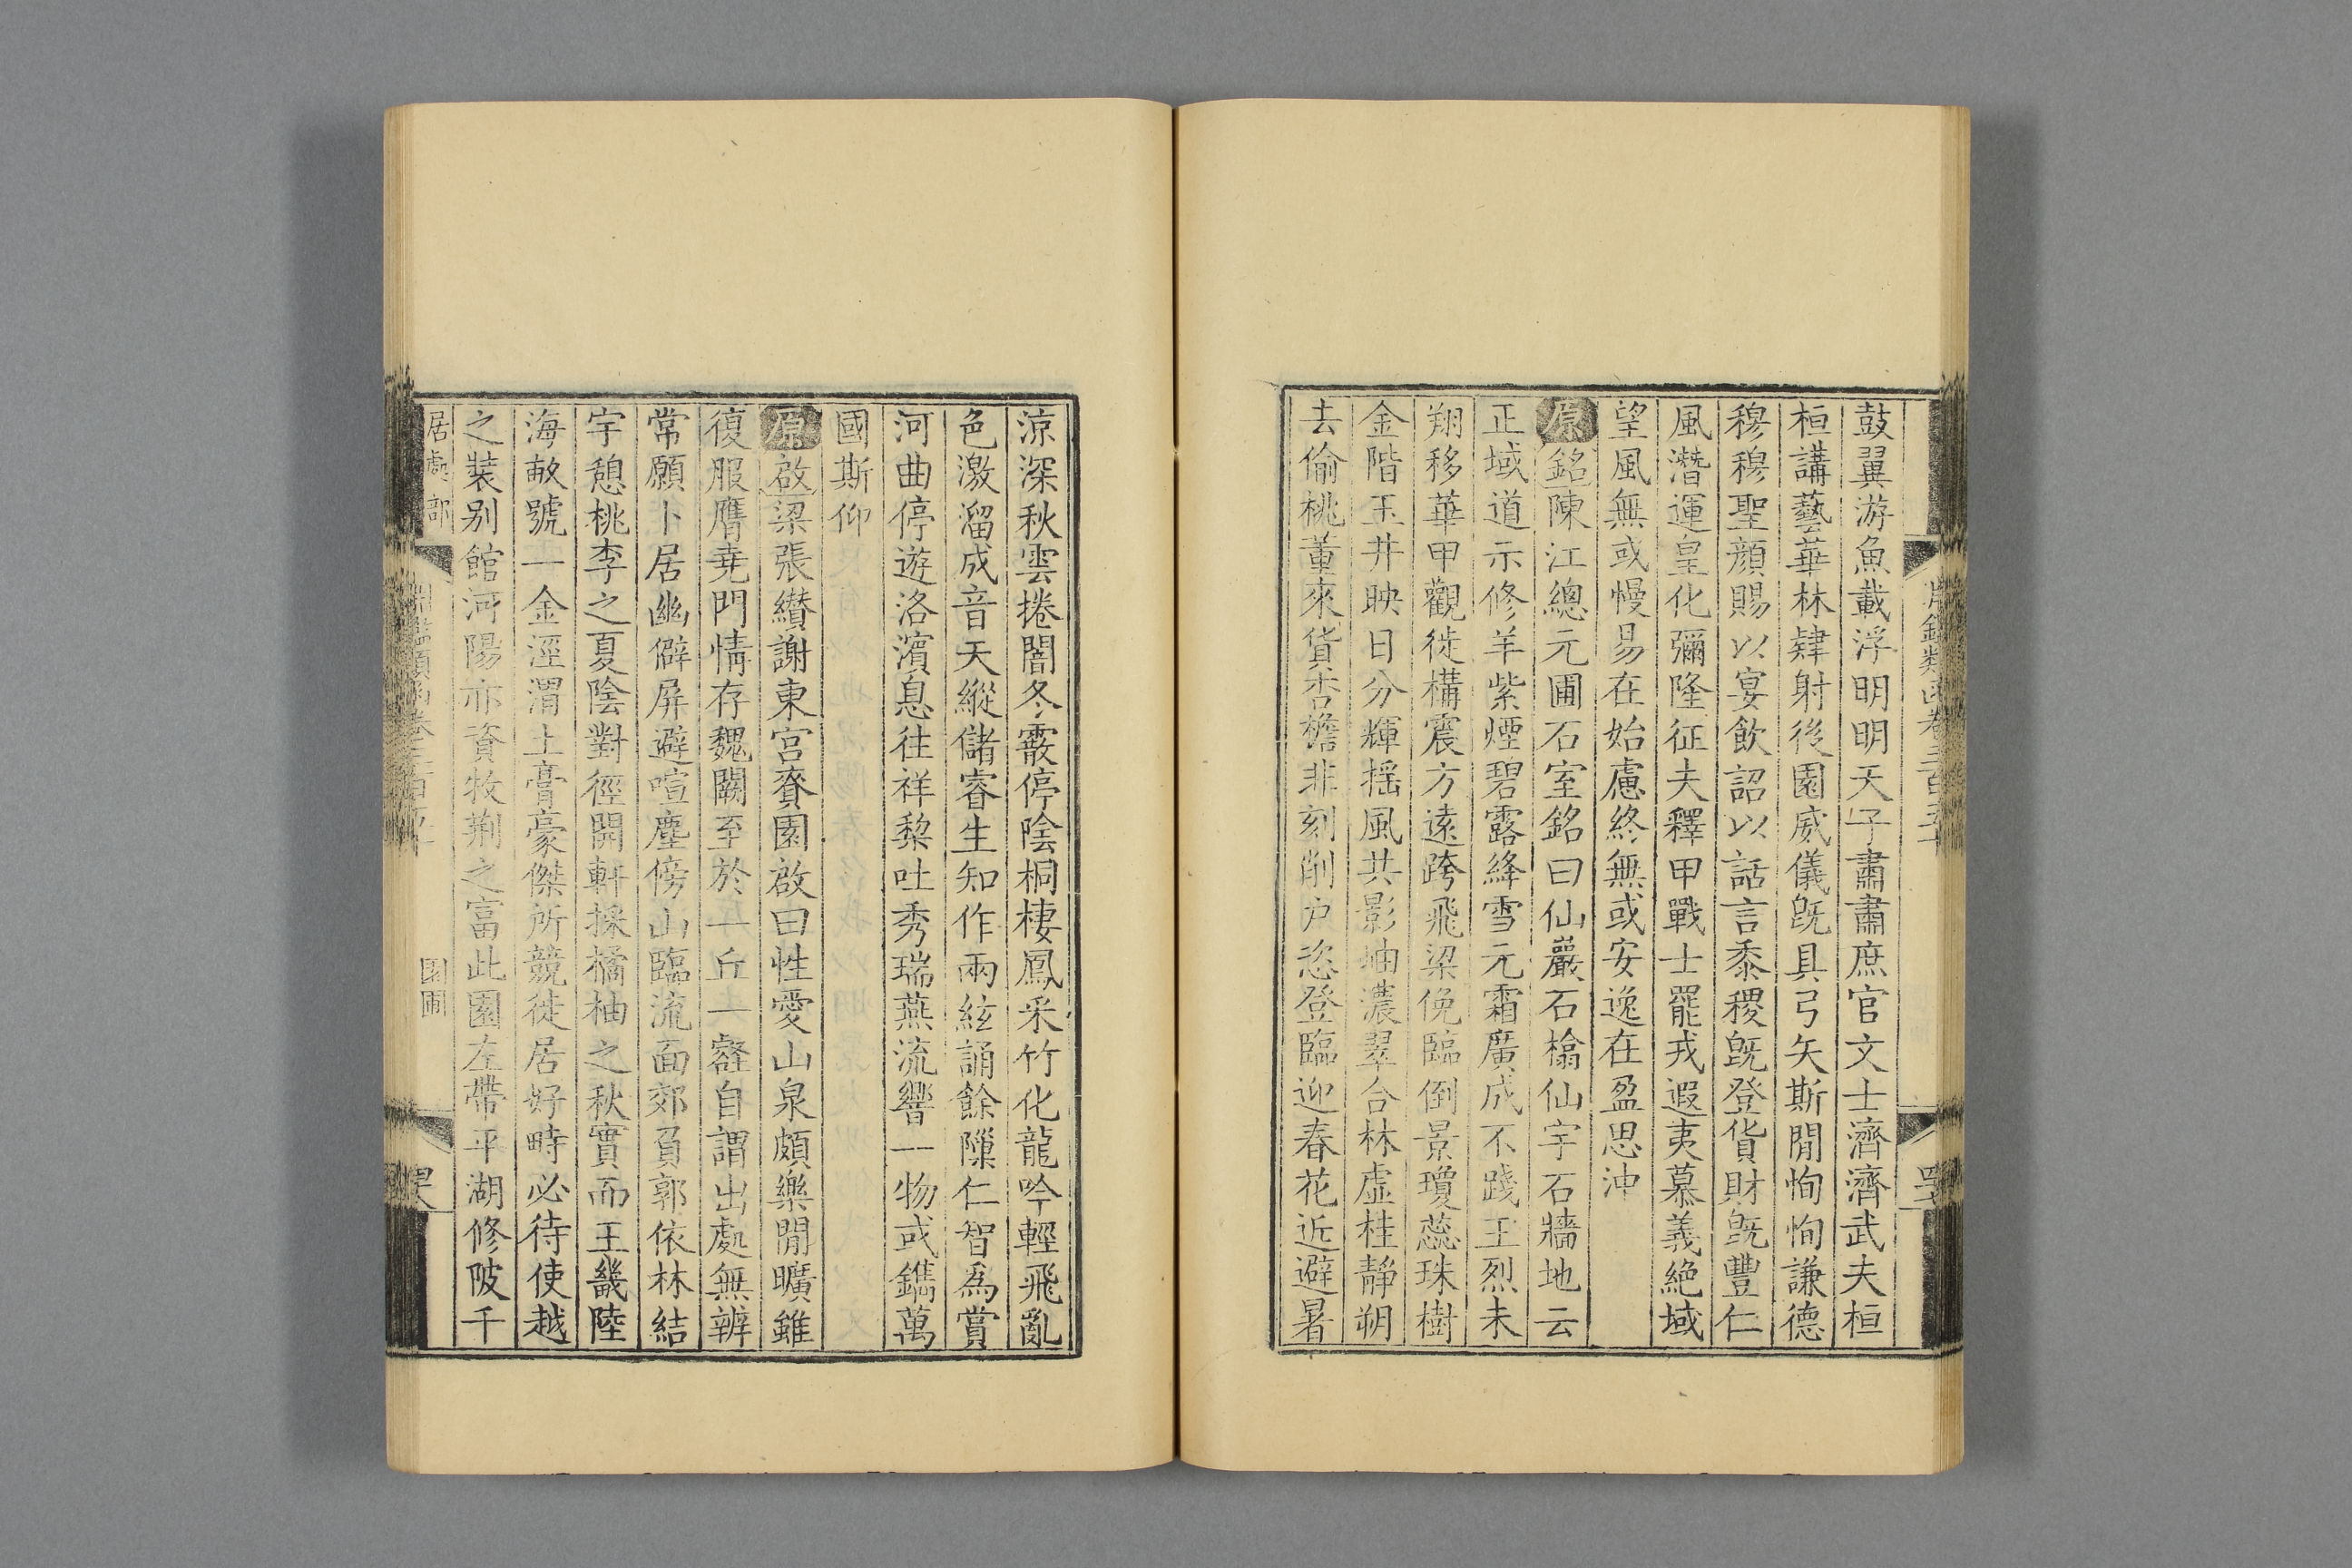 鼓翼游魚載浮明明天子肅肅庶官文士濟濟武夫桓
桓講藝華林肄射後園威儀既具弓矢斯閒恂恂謙德
穆穆聖顏賜以宴飲詔以話言黍稷既登貨財既豐仁
風潛運皇化彌隆征夫釋甲戰士罷戎遐夷慕義絕域
望風無或慢易在始慮終無或安逸在盈思沖
原銘陳江總元圃石室銘曰仙巖石檎仙宇石牆地云
正域道示修羊紫煙碧露絳雪元霜廣成不踐王烈未
翔移華甲觀徙構震方遠跨飛梁俛臨倒景瓊蕊珠樹
金階玉井映日分輝搖風共影岫濃翠合林虛桂靜朔
去偷桃董來貨杏檐非刻削戶恣登臨迎春花近避暑
涼深秋雲捲闇冬霰停陰桐棲鳳采竹化龍吟輕飛亂
色激溜成音天縱儲睿生知作兩絃誦餘隟仁智為賞
河曲停遊洛濱息往祥棃吐秀瑞燕流響一物或鐫萬
國斯仰
原啟梁張纘謝東宮賚園啟曰性愛山泉頗樂閒曠雖
復服膺堯門情存魏闕至於一丘一壑自謂出處無辨
常願卜居幽僻屏避喧塵傍山臨流面郊負郭依林結
宇憩桃李之夏陰對徑開軒採橘柚之秋實而王畿陸
海畝號一金涇渭土膏豪傑所競徙居好畤必待使越
之裝別館河陽亦資牧荊之富此園左帶平湖修陂千
居處部
園圃